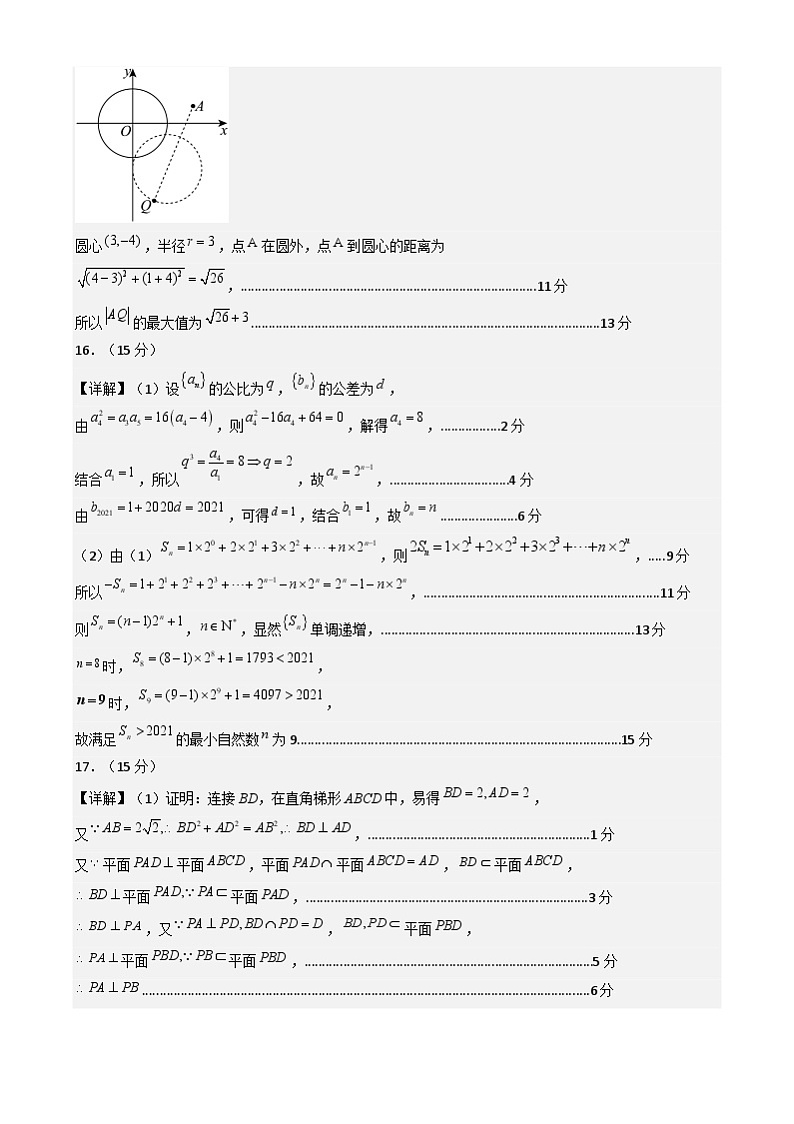 y
A
O
x
Q
圆心(3,−4)，半径r=3，点A在圆外，点A到圆心的距离为
√((4−3)²+(1+4)²)=√26，....................11分
所以|AQ|的最大值为√26+3....................13分
16．（15分）
【详解】（1）设{aₙ}的公比为q，{bₙ}的公差为d，
由a₄²=a₃a₅=16(a₄−4)，则a₄²−16a₄+64=0，解得a₄=8，..................2分
结合a₁=1，所以q³=a₄/a₁=8⇒q=2，故aₙ=2ⁿ⁻¹，....................4分
由b₂₀₂₁=1+2020d=2021，可得d=1，结合b₁=1，故bₙ=n......................6分
（2）由（1）Sₙ=1×2⁰+2×2¹+3×2²+⋯+n×2ⁿ⁻¹，则2Sₙ=1×2¹+2×2²+3×2³+⋯+n×2ⁿ，.....9分
所以−Sₙ=1+2¹+2²+2³+⋯+2ⁿ⁻¹−n×2ⁿ=2ⁿ−1−n×2ⁿ，....................11分
则Sₙ=(n−1)2ⁿ+1，n∈N*，显然{Sₙ}单调递增，....................13分
n=8时，S₈=(8−1)×2⁸+1=1793<2021，
n=9时，S₉=(9−1)×2⁹+1=4097>2021，
故满足Sₙ>2021的最小自然数n为9....................15分
17．（15分）
【详解】（1）证明：连接BD，在直角梯形ABCD中，易得BD=2,AD=2，
又∵AB=2√2,∴BD²+AD²=AB²,∴BD⊥AD，....................1分
又∵平面PAD⊥平面ABCD，平面PAD∩平面ABCD=AD，BD⊂平面ABCD，
∴BD⊥平面PAD,∵PA⊂平面PAD，....................3分
∴BD⊥PA，又∵PA⊥PD,BD∩PD=D，BD,PD⊂平面PBD，
∴PA⊥平面PBD,∵PB⊂平面PBD，....................5分
∴PA⊥PB....................6分